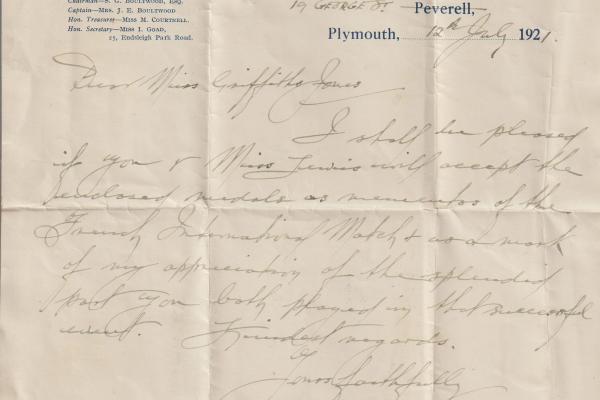 Chairman—S. G. Boultwood, Esq.
Captain—Mrs. J. E. Boultwood
Hon. Treasurer—Miss M. Courtnell.
Hon. Secretary—Miss I. Goad,
Endsleigh Park Road.
19 George St Peverell,
Plymouth, 12th July 1921.
Dear Miss Griffiths Jones
I shall be pleased
if you & Miss Lewis will accept the
enclosed medals as mementos of the
French International Match & as a mark
of my appreciation of the splendid
part you both played in that successful
event. Kindest regards.
Yours faithfully